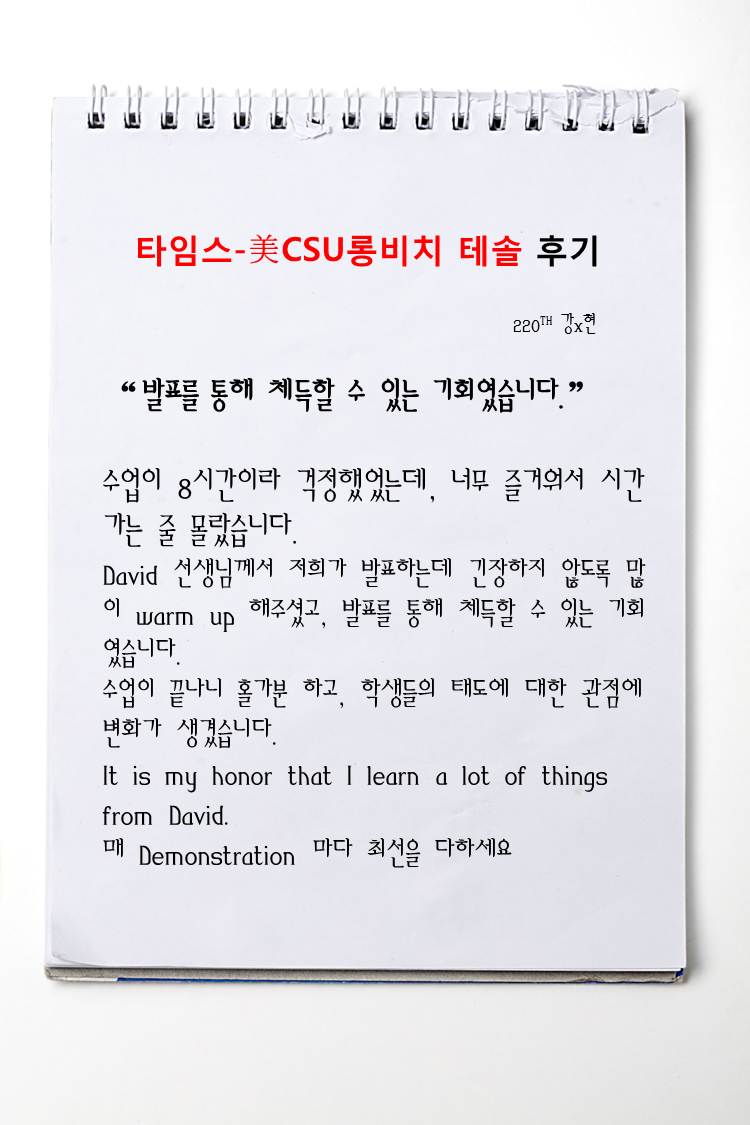 타임스-美CSU롱비치 테솔 후기
220TH 강x현
“발표를 통해 체득할 수 있는 기회였습니다.”
수업이 8시간이라 걱정했었는데, 너무 즐거워서 시간
가는 줄 몰랐습니다.
David 선생님께서 저희가 발표하는데 긴장하지 않도록 많
이 warm up 해주셨고, 발표를 통해 체득할 수 있는 기회
였습니다.
수업이 끝나니 홀가분 하고, 학생들의 태도에 대한 관점에
변화가 생겼습니다.
It is my honor that I learn a lot of things
from David.
매 Demonstration 마다 최선을 다하세요